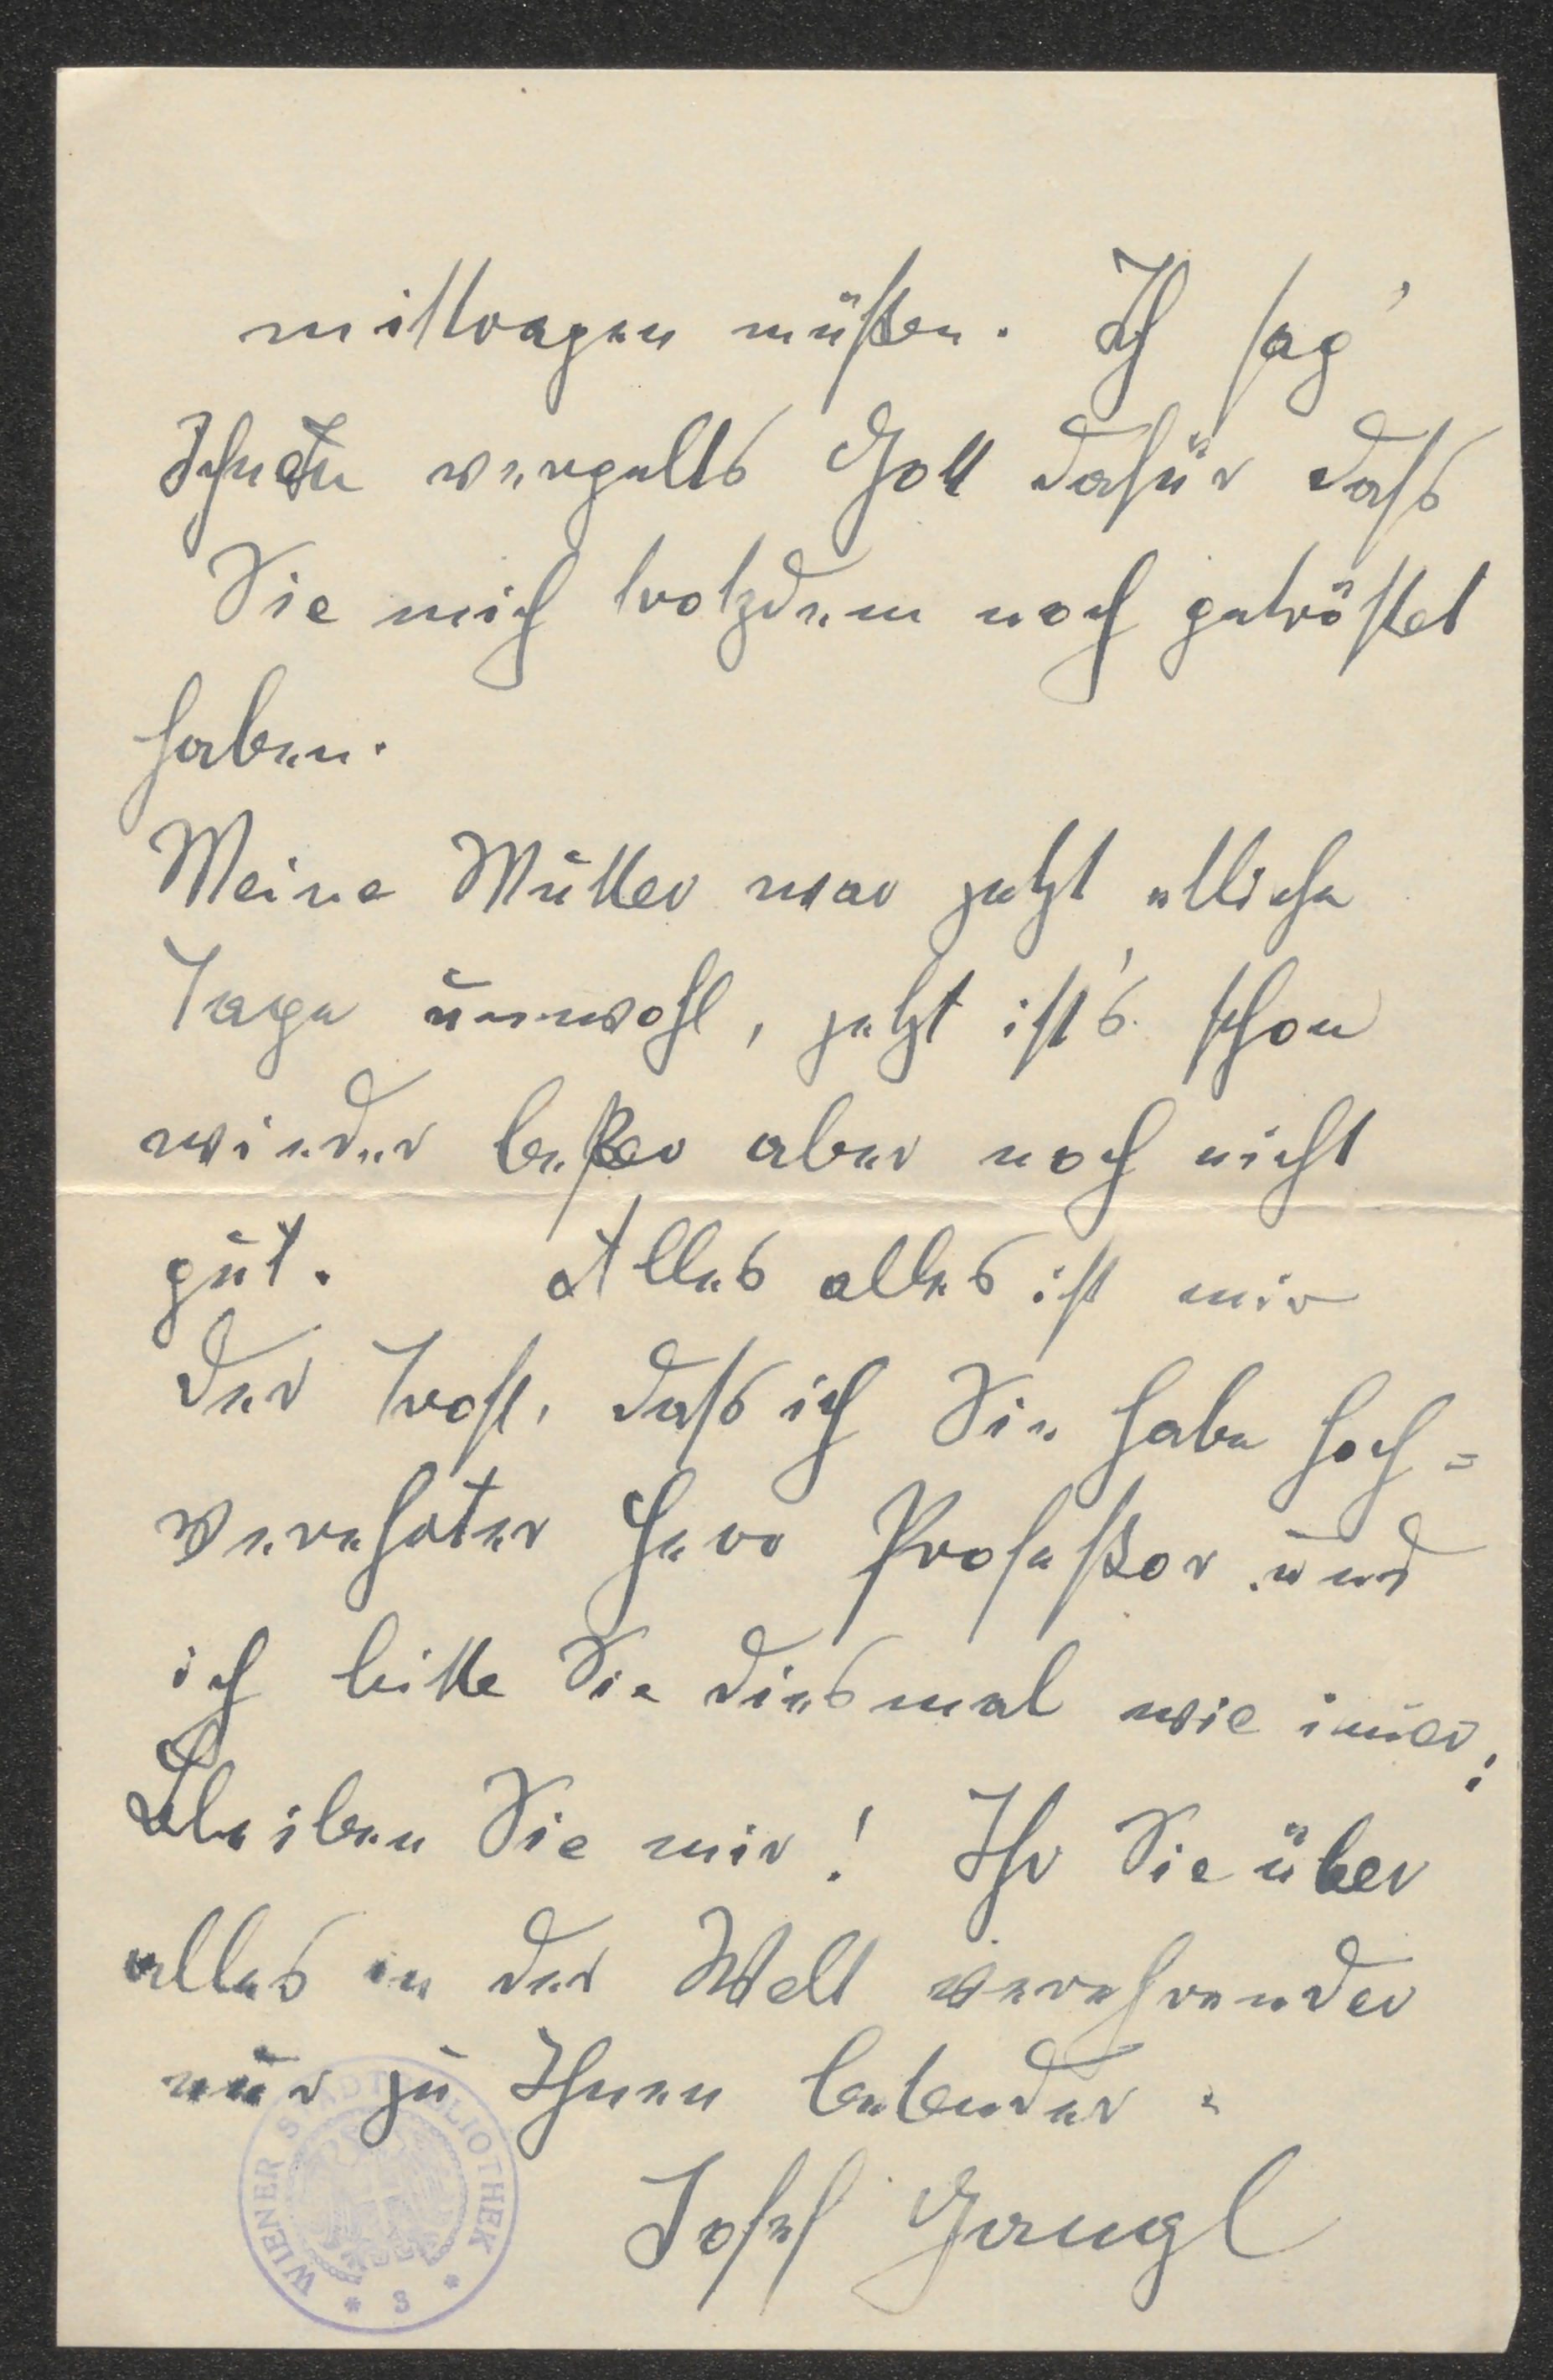 mittragen müßen. Ich sag'
Ihnen vergelts Gott dafür dass
Sie mich trotzdem noch getröstet
haben.
Meine Mutter war jetzt etliche
Tage unwohl, jetzt ist's schon
wieder beßer aber noch nicht
gut. Alles alles ist mir
der Trost, dass ich Sie habe hoch=
verehrter Herr Profeßor und
ich bitte Sie diesmal wie im̄er:
Bleiben Sie mir! Ihr Sie über
alles in der Welt verehrender
nur zu Ihnen betender
Josef Gangl
WIENER STADTBIBLIOTHEK
* 3 *